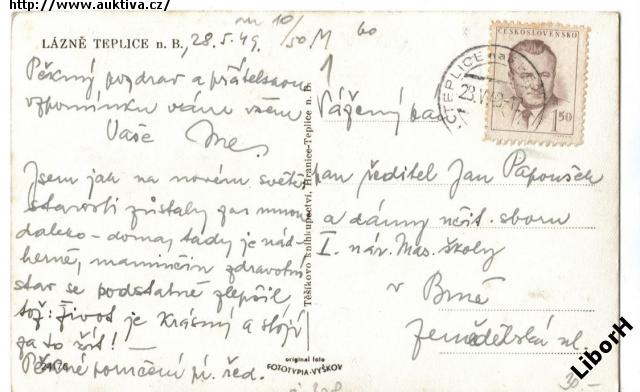 http://www.auktiva.cz/
LÁZNĚ TEPLICE n. B., 28.5.49.
10/50/M
60
1
ČESKOSLOVENSKO
1,50
TEPLICE nad
Pěkný pozdrav a přátelskou
vzpomínku vám všem
Vaše
Jsem jak na novém světě,
starosti zůstaly za mnou
daleko – doma, tady je nád-
herně, maminčin zdravotní
stav se podstatně zlepšil,
tož: Život je krásný a stojí
za to žít! –
Pěkné poručení pí. řed.
Těšíkovo knihkupectví, Hranice-Teplice n. B.
Vážený pan
pan ředitel Jan Papoušek
a dámy učit. sboru
I. nár. Mas. školy
v Brně
Zemědělská ul.
original foto
FOTOTYPIA-VYŠKOV
30.–
LiborH